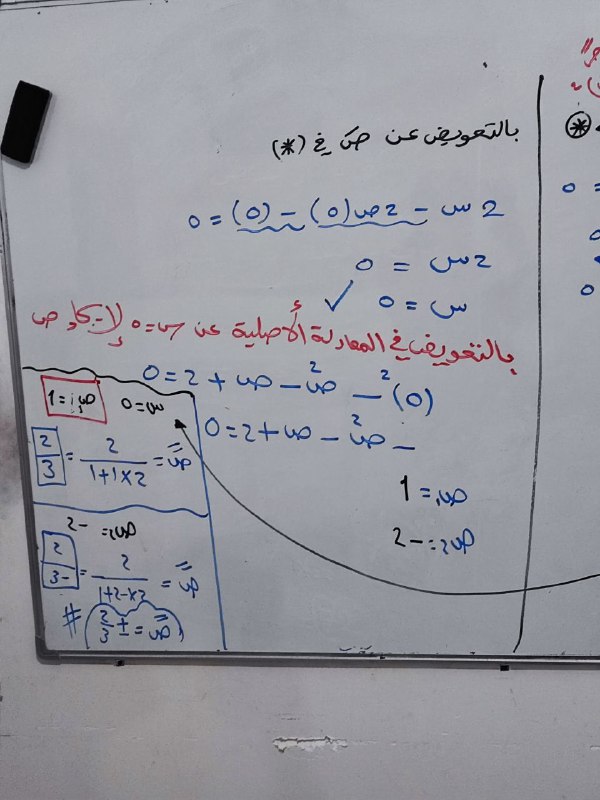 بالتعويض عن صَ في (*)
2س - 2ص(0) - (0) = 0
2س = 0
س = 0 ✓
بالتعويض في المعادلة الأصلية عن س=0 لإيجاد ص
(0)² - ص² - ص + 2 = 0
- ص² - ص + 2 = 0
ص₁ = 1
ص₂ = -2
س=0 ص₁=1
صً = 2/(2×1+1) = 2/3
ص₂ = -2
صً = 2/(2×-2+1) = 2/-3
صً = ± 2/3 #
(*)
= 0
0
0